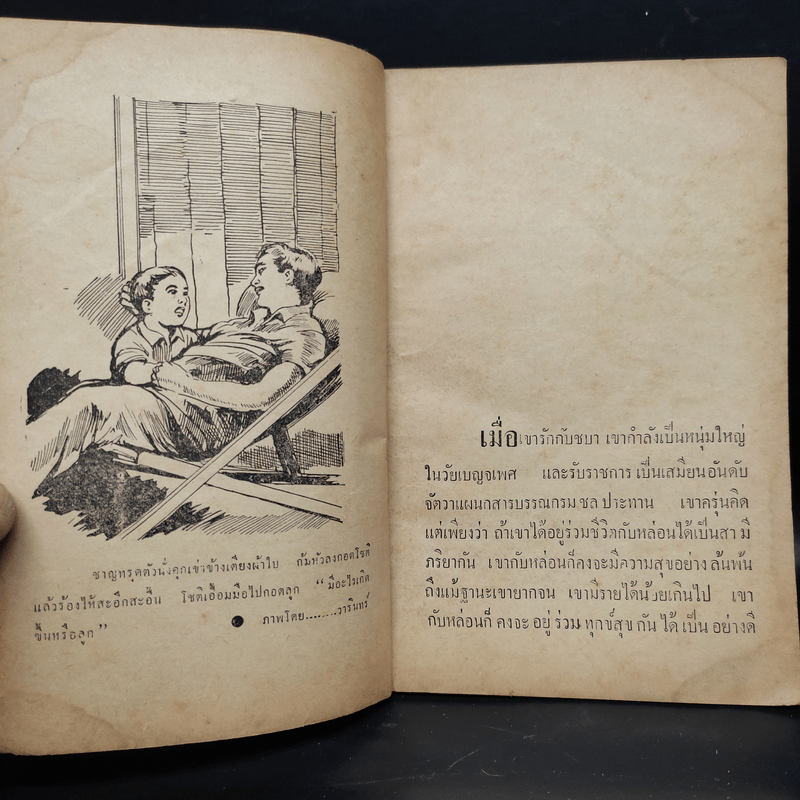 ชาญทรุดตัวนั่งคุกเข่าข้างเตียงผ้าใบ ก้มหัวลงกอดโชติ
แล้วร้องไห้สะอึกสะอื้น โชติเอื้อมมือไปกอดลูก “มีอะไรเกิด
ขึ้นหรือลูก”
ภาพโดย........วารินทร์
เมื่อเขารักกับชบา เขากำลังเป็นหนุ่มใหญ่
ในวัยเบญจเพศ และรับราชการ เป็นเสมียนอันดับ
จัตวาแผนกสารบรรณกรม ชล ประทาน เขาครุ่นคิด
แต่เพียงว่า ถ้าเขาได้อยู่ร่วมชีวิตกับหล่อนได้เป็นสา มี
ภริยากัน เขากับหล่อนก็คงจะมีความสุขอย่าง ล้นพ้น
ถึงแม้ฐานะเขายากจน เขามีรายได้น้อยเกินไป เขา
กับหล่อนก็ คงจะ อยู่ ร่วม ทุกข์สุข กัน ได้ เป็น อย่างดี